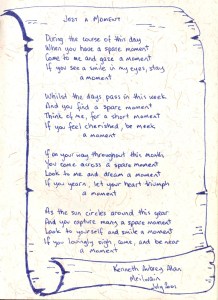 JUST A MOMENT
During the course of this day
When you have a spare moment
Come to me and gaze a moment
If you see a smile in my eyes, stay
a moment
Whilst the days pass in this week
And you find a spare moment
Think of me, for a short moment
If you feel cherished, be meek
a moment
If on your way throughout this month
You come across a spare moment
Look to me and dream a moment
If you yearn, let your heart triumph
a moment
As the sun circles around this year
And you capture many a spare moment
Look to yourself and smile a moment
If you lovingly sigh, come, and be near
a moment
Kenneth Aubrey Alan
McIlwain
July